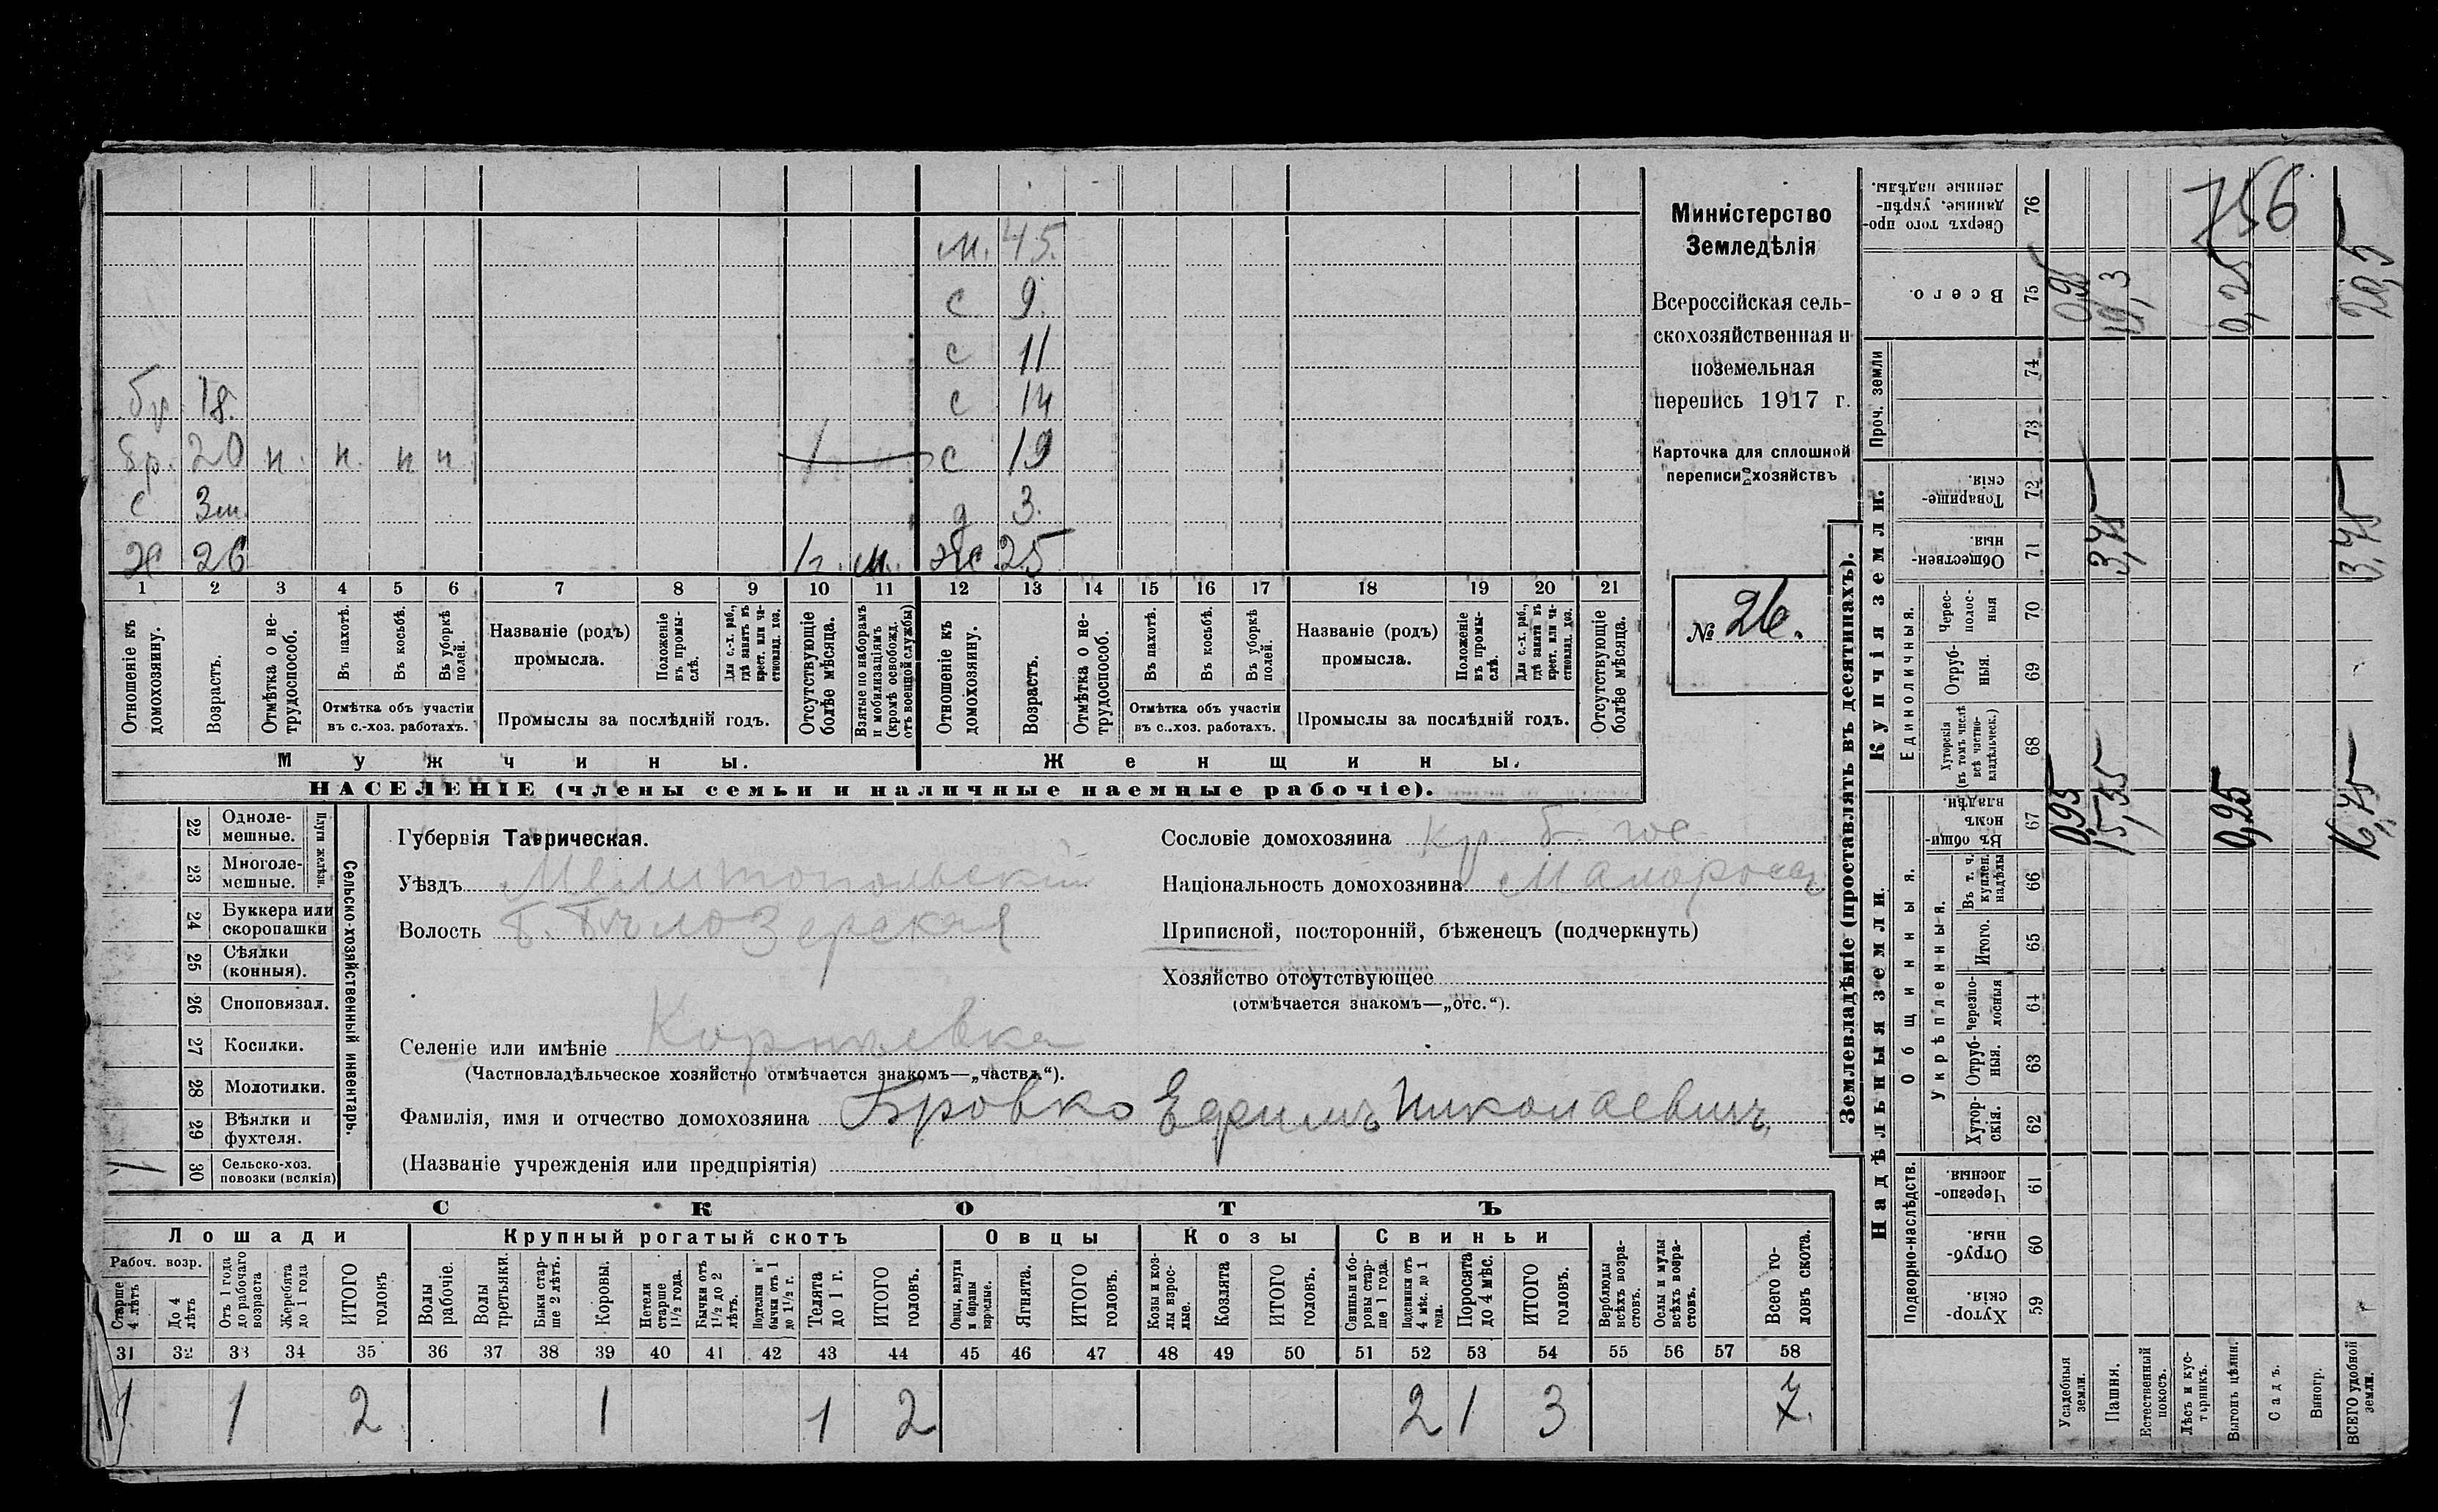 м. 45.
с 9.
с 11
бр. 18. с 14
бр. 20 н. н. н н 1 с 19
с 3м. д 3.
Х 26 1г. м. Ж 25
1 2 3 4 5 6 7 8 9 10 11 12 13 14 15 16 17 18 19 20 21
Отношеніе къ домохозяину.
Возрастъ.
Отмѣтка о не-
трудоспособ.
Въ пахотѣ.
Въ косьбѣ.
Въ уборкѣ
полей.
Отмѣтка объ участіи
въ с.-хоз. работахъ.
Названіе (родъ)
промысла.
Положеніе
въ промы-
слѣ.
Для с.-х. раб.,
гдѣ занятъ въ
крест. или ча-
стновлад. хоз.
Промыслы за послѣдній годъ.
Отсутствующіе
болѣе мѣсяца.
Взятые по наборамъ
и мобилизаціямъ
(кромѣ освобожд.
отъ военной службы)
Отношеніе къ
домохозяину.
Возрастъ.
Отмѣтка о не-
трудоспособ.
Въ пахотѣ.
Въ косьбѣ.
Въ уборкѣ
полей.
Отмѣтка объ участіи
въ с..хоз. работахъ.
Названіе (родъ)
промысла.
Положеніе
въ промы-
слѣ.
Для с.-х. раб.,
гдѣ занята въ
крест. или ча-
стновлад. хоз.
Промыслы за послѣдній годъ.
Отсутствующіе
болѣе мѣсяца.
Мужчины. Женщины.
НАСЕЛЕНІЕ (члены семьи и наличные наемные рабочіе).
Министерство
Земледѣлія
Всероссійская сель-
скохозяйственная и
поземельная
перепись 1917 г.
Карточка для сплошной
переписи хозяйствъ
№ 26.
22 Одноле-
мешные.
23 Многоле-
мешные.
Плуги желѣзн.
24 Буккера или
скоропашки
25 Сѣялки
(конныя).
26 Сноповязал.
27 Косилки.
28 Молотилки.
29 Вѣялки и
фухтеля.
1 30 Сельско-хоз.
повозки (всякія)
Сельско-хозяйственный инвентарь.
Губернія Таврическая.
Уѣздъ Мелитопольскій
Волость Б. Бѣлозерская
Селеніе или имѣніе Корнѣевка
(Частновладѣльческое хозяйство отмѣчается знакомъ—„частвл.“).
Фамилія, имя и отчество домохозяина Бровко Ефимъ Николаевичъ
(Названіе учрежденія или предпріятія)
Сословіе домохозяина кр. б. гос
Національность домохозяина Малоросъ
Приписной, посторонній, бѣженецъ (подчеркнуть)
Хозяйство отсутствующее
(отмѣчается знакомъ—„отс.“).
СКОТЪ
Лошади Крупный рогатый скотъ Овцы Козы Свиньи
Рабоч. возр.
Старше
4 лѣтъ
До 4
лѣтъ
Отъ 1 года
до рабочаго
возраста
Жеребята
до 1 года
ИТОГО
головъ
Волы
рабочіе.
Волы
третьяки.
Быки стар-
ше 2 лѣтъ.
Коровы.
Нетели
старше
1½ года.
Бычки отъ
1½ до 2
лѣтъ.
Подтелки и
бычки отъ 1
до 1½ г.
Телята
до 1 г.
ИТОГО
головъ.
Овцы, валухи
и бараны
взрослые.
Ягнята.
ИТОГО
головъ.
Козы и коз-
лы взрос-
лые.
Козлята
ИТОГО
головъ.
Свиньи и бо-
ровы стар-
ше 1 года.
Подсвинки отъ
4 мѣс. до 1
года.
Поросята
до 4 мѣс.
ИТОГО
головъ.
Верблюды
всѣхъ возра-
стовъ.
Ослы и мулы
всѣхъ возра-
стовъ.
Всего го-
ловъ скота.
31 32 33 34 35 36 37 38 39 40 41 42 43 44 45 46 47 48 49 50 51 52 53 54 55 56 57 58
1 1 2 1 1 2 2 1 3 7.
Землевладѣніе (проставлять въ десятинахъ).
Надѣльныя земли. Купчія земли. Проч. земли
Подворно-наслѣдств. Общинныя. Единоличныя.
Укрѣпленныя.
Хутор-
скія.
Отруб-
ныя.
Черезпо-
лосныя
Хутор-
скія.
Отруб-
ныя.
Черезпо-
лосныя
Итого.
Въ т. ч.
куплен.
надѣлы
Въ общин-
номъ
владѣн.
Хуторскія
(въ томъ числѣ
всѣ частно-
владѣльческ.)
Отруб-
ныя.
Черес-
полос-
ныя
Обществен-
ныя.
Товарище-
скія.
Всего.
Сверхъ того про-
данные, укрѣп-
ленные надѣлы.
59 60 61 62 63 64 65 66 67 68 69 70 71 72 73 74 75 76
Усадебныя
земли. 0,95 0,95
Пашня. 15,55 3,75 19,3
Естественный
покосъ.
Лѣсъ и кус-
тарникъ.
Выгонъ цѣлин. 0,25 0,25
Садъ.
Виногр.
ВСЕГО удобной
земли. 16,75 3,75 20,5
756